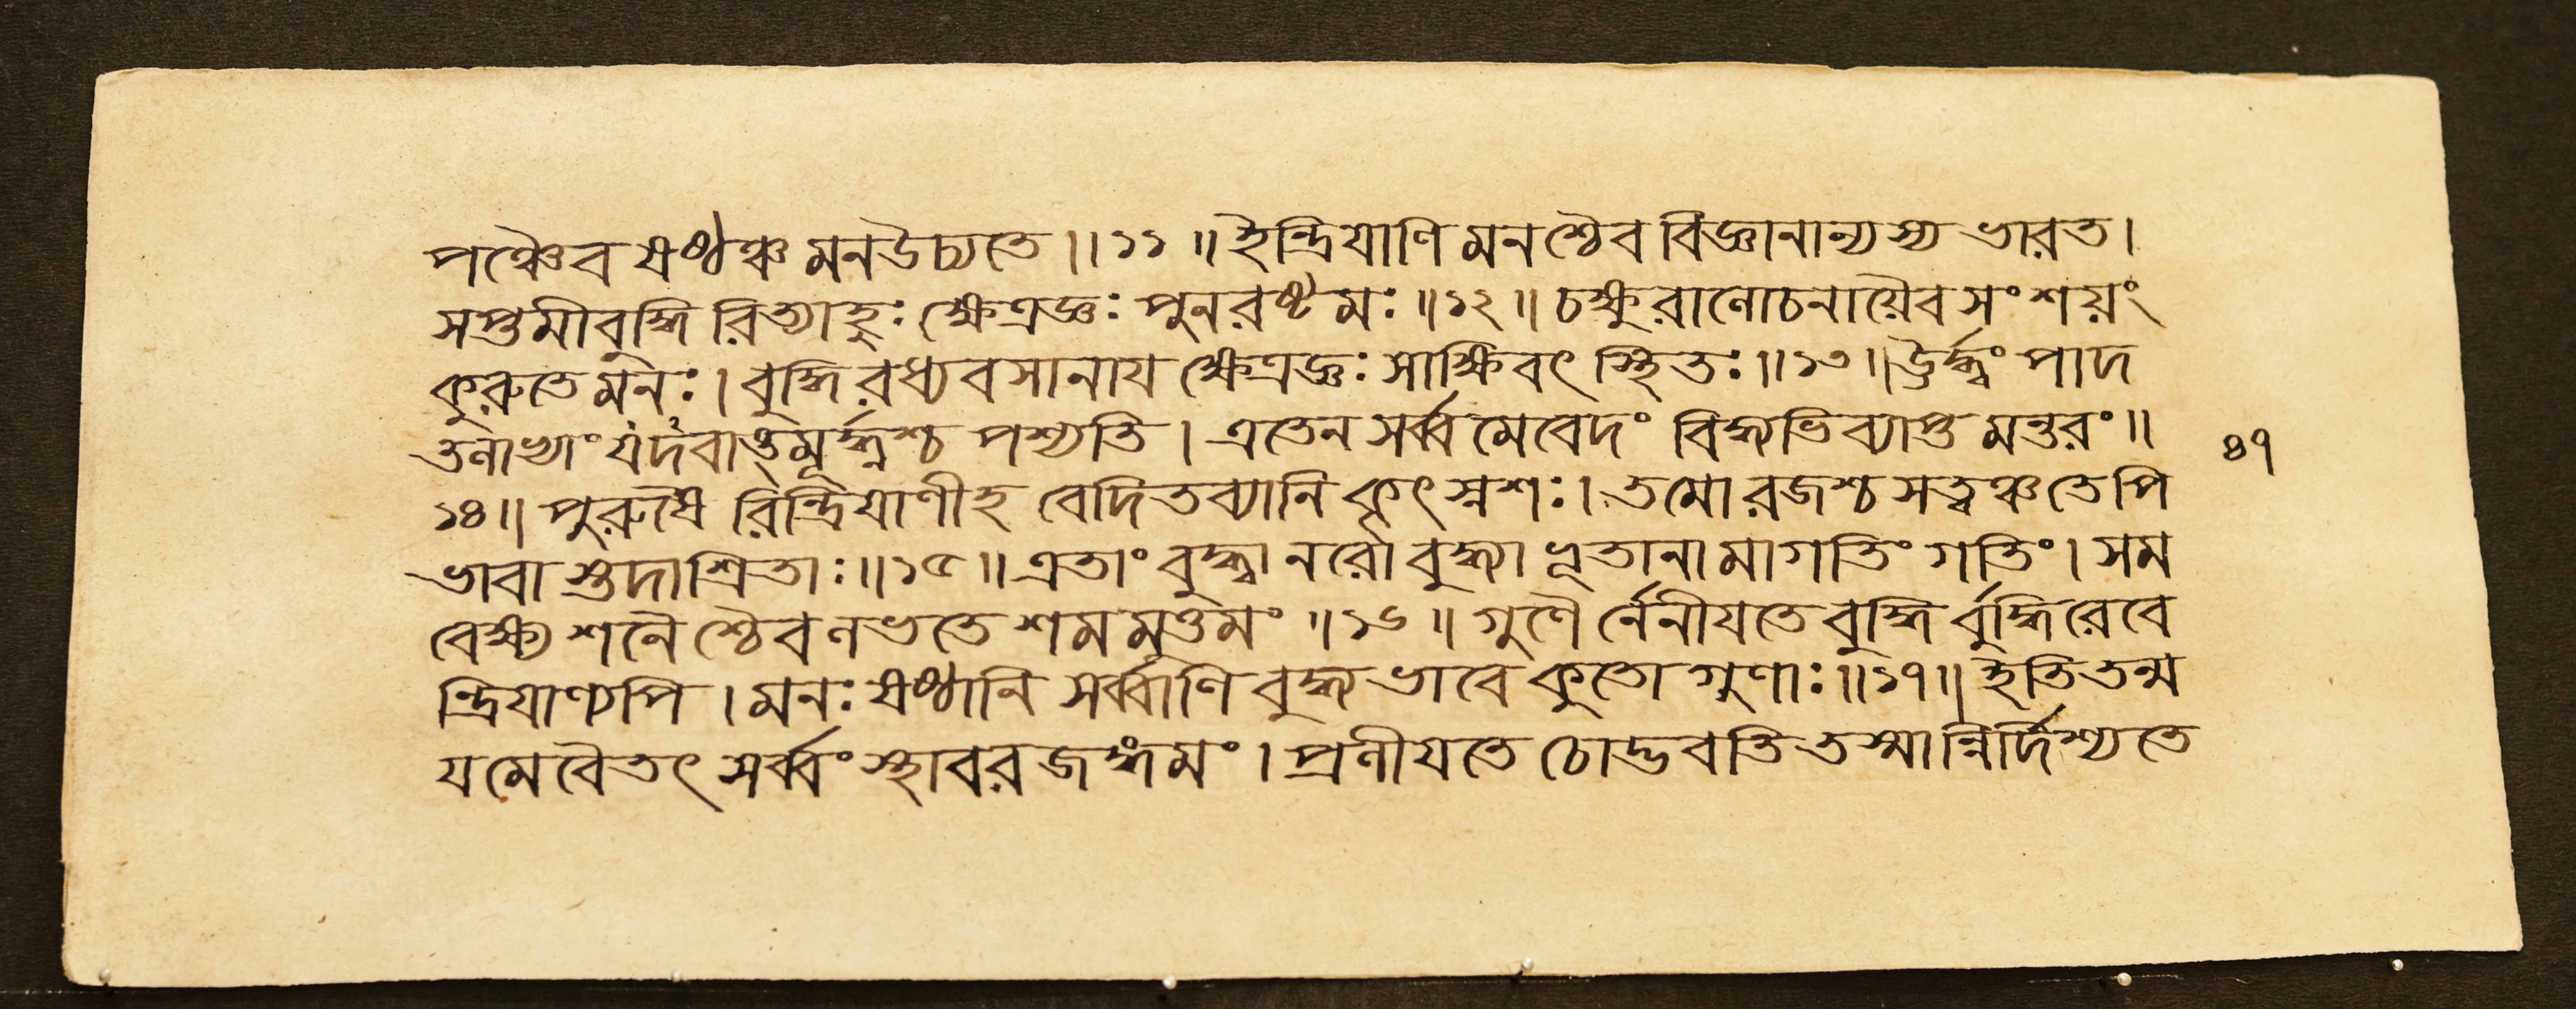 পঞ্চৈব ষষ্ঠঞ্চ মনউচ্যতে ॥১১॥ ইন্দ্রিযাণি মনশ্চৈব বিজ্ঞানান্যস্য ভারত।
সপ্তমী বুদ্ধি রিত্যাহুঃ ক্ষেত্রজ্ঞঃ পুনরষ্টমঃ ॥১২॥ চক্ষুরাণোচনায়ৈব সংশয়ং
কুরুতে মনঃ। বুদ্ধি রধ্যবসানায ক্ষেত্রজ্ঞঃ সাক্ষিবৎ স্থিতঃ ॥১৩॥ ঊর্দ্ধ্বং পাদ
তনাভ্যাং যদবাগূর্দ্ধ্বশ্চ পশ্যতি। এতেন সর্ব্ব মেবেদং বিদ্ধ্যভিব্যাপ্ত মন্তরং ॥
১৪॥ পুরুষৈ রিন্দ্রিযাণীহ বেদিতব্যানি কৃৎস্নশঃ। তমো রজশ্চ সত্বঞ্চ তেপি
ভাবা স্তদাশ্রিতাঃ ॥১৫॥ এতাং বুদ্ধ্বা নরো বুদ্ধ্যা ভূতানা মাগতিং গতিং। সম
বেক্ষ্য শনৈ শ্চৈব ণভতে শম মুত্তমং ॥১৬॥ গুণৈ র্নেনীযতে বুদ্ধি র্বুদ্ধি রেবে
ন্দ্রিযাণ্যপি। মনঃ ষষ্ঠানি সর্ব্বাণি বুদ্ধ্যভাবে কুতো গুণাঃ ॥১৭॥ ইতি তন্ম
যমেবৈতৎ সর্ব্বং স্থাবর জঙ্গমং। প্রণীযতে চোদ্ভবতি তস্মান্নির্দিশ্যতে
৪৭